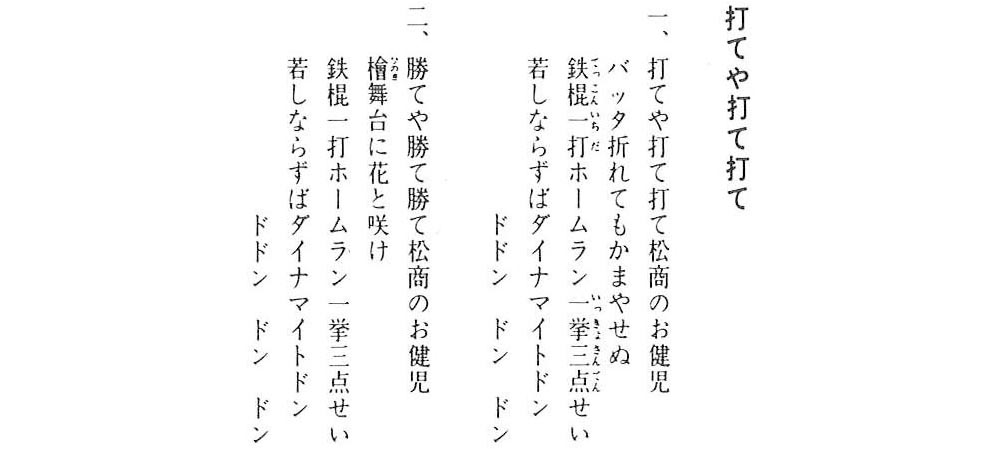 打てや打て打て
一、打てや打て打て松商のお健児
バッタ折れてもかまやせぬ
鉄棍一打ホームラン一挙三点せい
若しならずばダイナマイトドン
ドドン ドン ドン
二、勝てや勝て勝て松商のお健児
檜舞台に花と咲け
鉄棍一打ホームラン一挙三点せい
若しならずばダイナマイトドン
ドドン ドン ドン